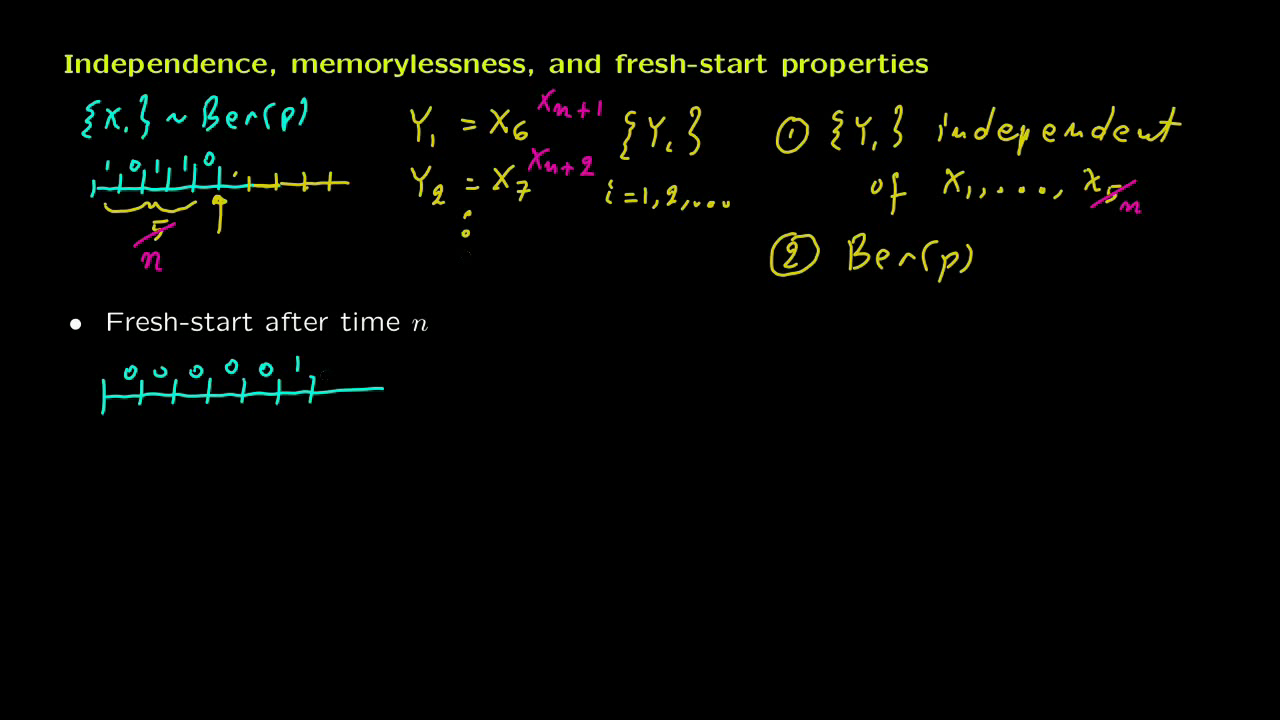 Independence, memorylessness, and fresh-start properties
{X_i} ~ Ber(p)
1 0 1 1 0
5
n
Y_1 = X_6 X_{n+1}
Y_2 = X_7 X_{n+2}
⋮
{Y_i}
i = 1, 2, ...
① {Y_i} independent
of X_1, ..., X_5 n
② Ber(p)
• Fresh-start after time n
0 0 0 0 0 1